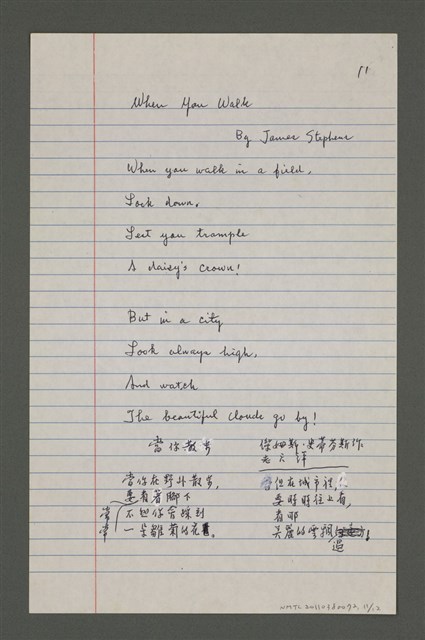 11
When You Walk
By James Stephens
When you walk in a field,
Look down,
Lest you trample
A daisy's crown!
But in a city
Look always high,
And watch
The beautiful clouds go by!
當你散步
傑姆斯·史蒂芬斯作
當你在野外散步,
要看著腳下
不然你會踩到
一朵雛菊的花
常常
但在城市裡,
要時時往上看,
看那
美麗的雲飄
過
NMTL 11/12